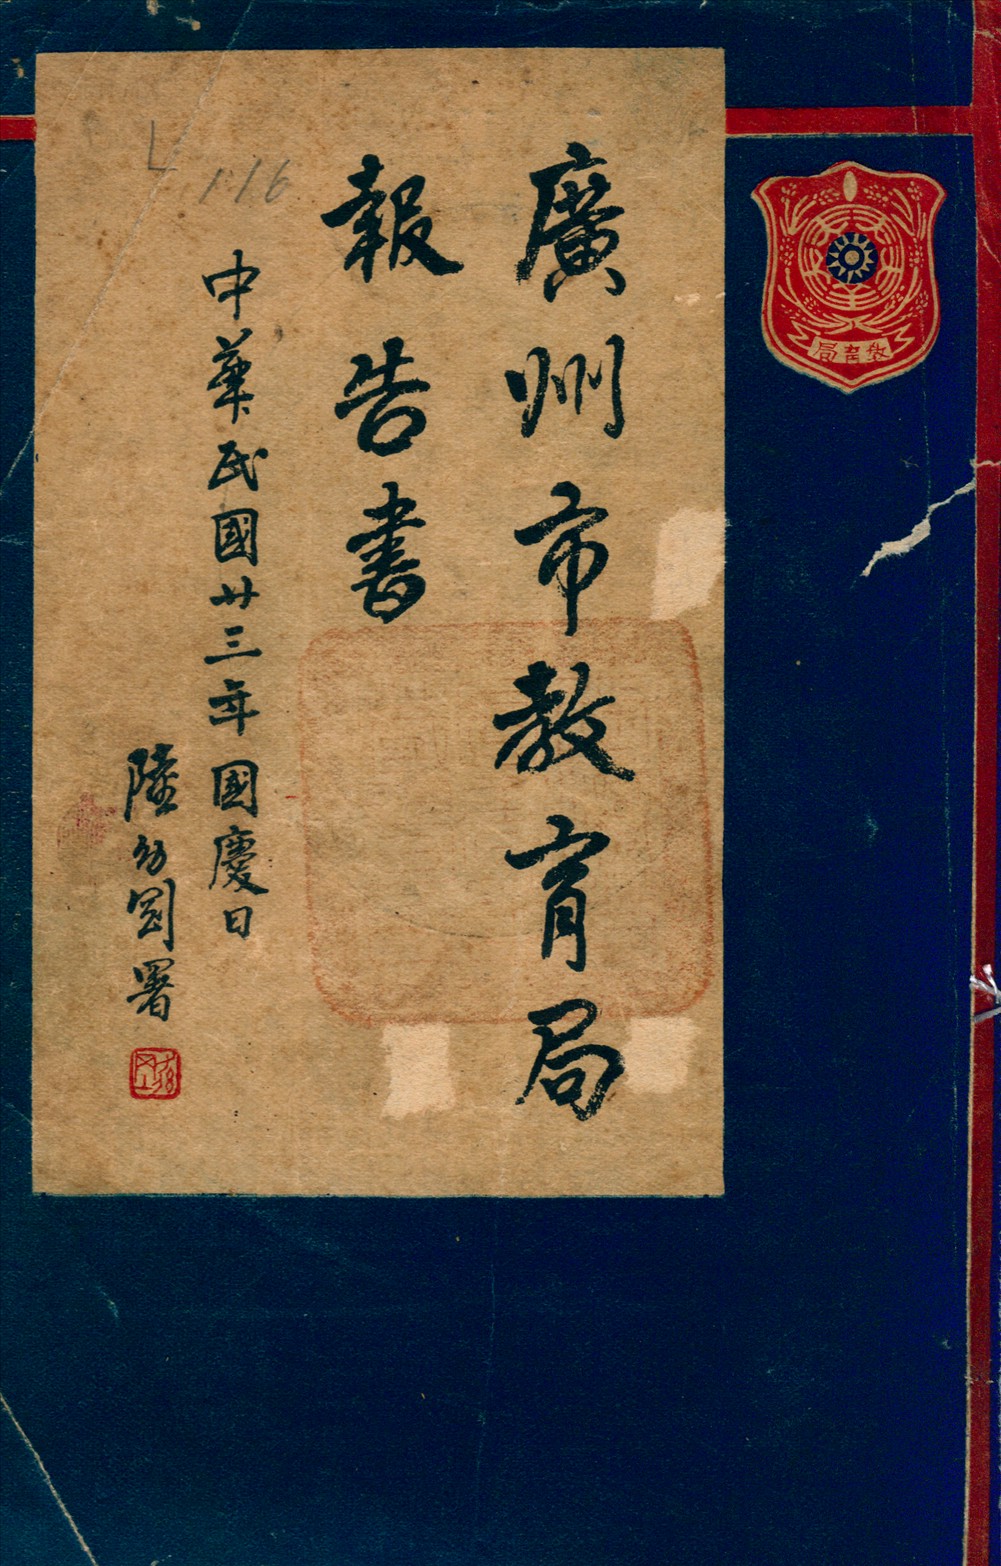 廣州市教育局
報告書
中華民國廿三年國慶日
陸幼剛署
116
教育局